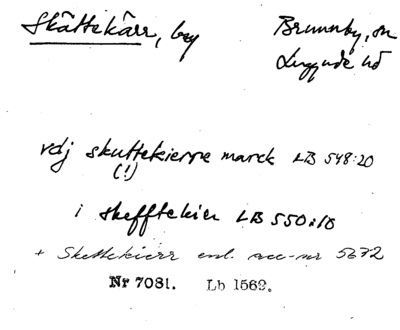 Skättekärr, by Brunnby, sn
Luggude hd
vdj skuttekierre marck LB 548:20
(!)
i skefftekier LB 550:18
+ Skettekierr enl. acc-nr 5672
Nr 7081. Lb 1569.